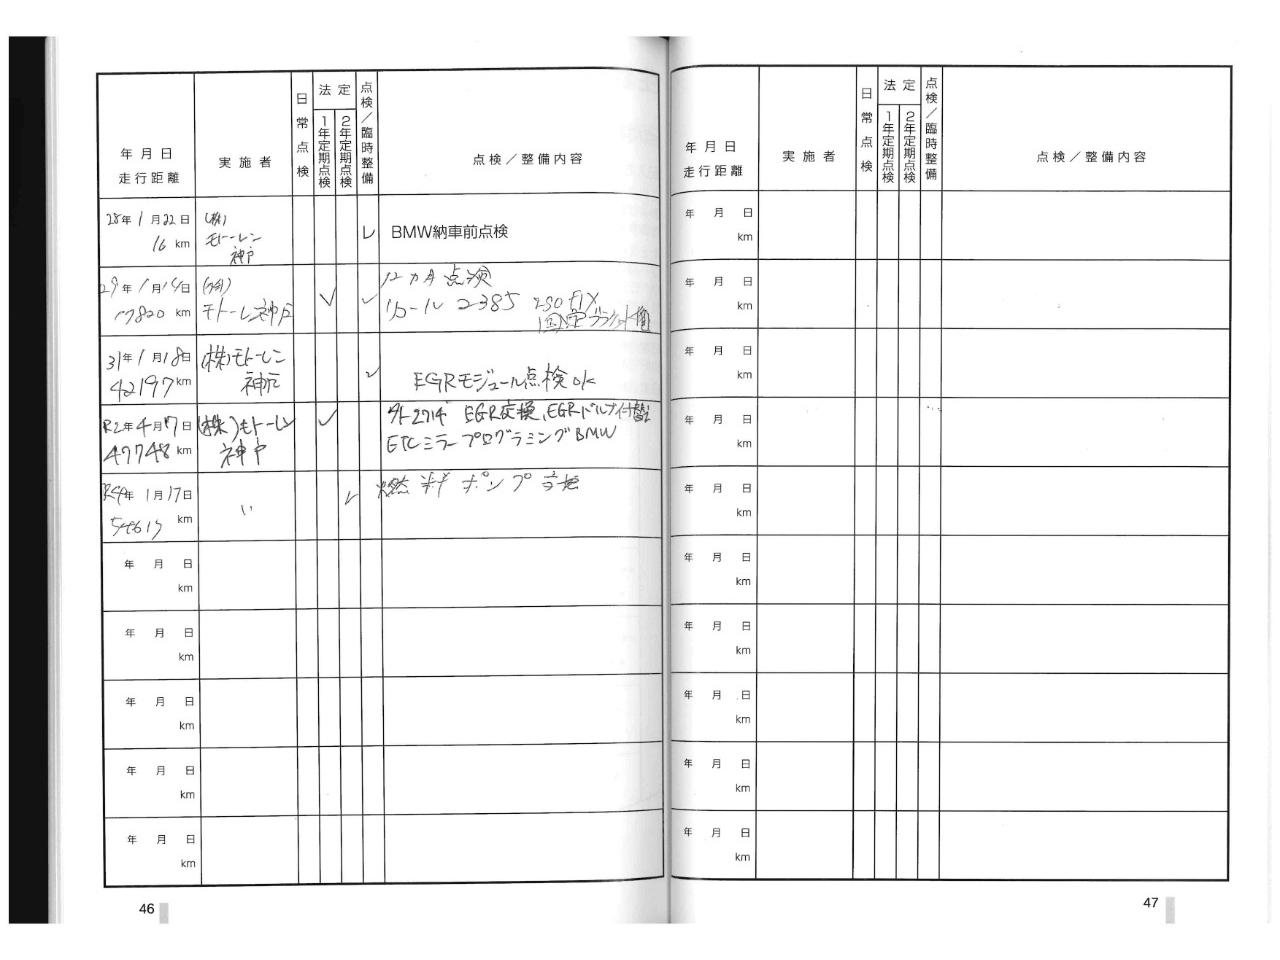 年月日
走行距離
実施者
日常点検
法定
1年定期点検
2年定期点検
点検/臨時整備
点検/整備内容
28年1月22日
16 km
(株)
モトーレン
神戸
レ
BMW納車前点検
29年1月14日
17820 km
(株)
モトーレン神戸
✓
✓
12ヵ月点検
リコール 2385
31年1月18日
42197km
(株)モトーレン
神戸
✓
EGRモジュール点検OK
R2年4月17日
47748km
(株)モトーレン
神戸
✓
EGR交換、EGRバルブ付替
ETCミラープログラミングBMW
R4年1月17日
54617 km
〃
✓
燃料ポンプ交換
年 月 日
km
年 月 日
km
年 月 日
km
年 月 日
km
年 月 日
km
46
年月日
走行距離
実施者
日常点検
法定
1年定期点検
2年定期点検
点検/臨時整備
点検/整備内容
年 月 日
km
年 月 日
km
年 月 日
km
年 月 日
km
年 月 日
km
年 月 日
km
年 月 日
km
年 月 日
km
年 月 日
km
年 月 日
km
47